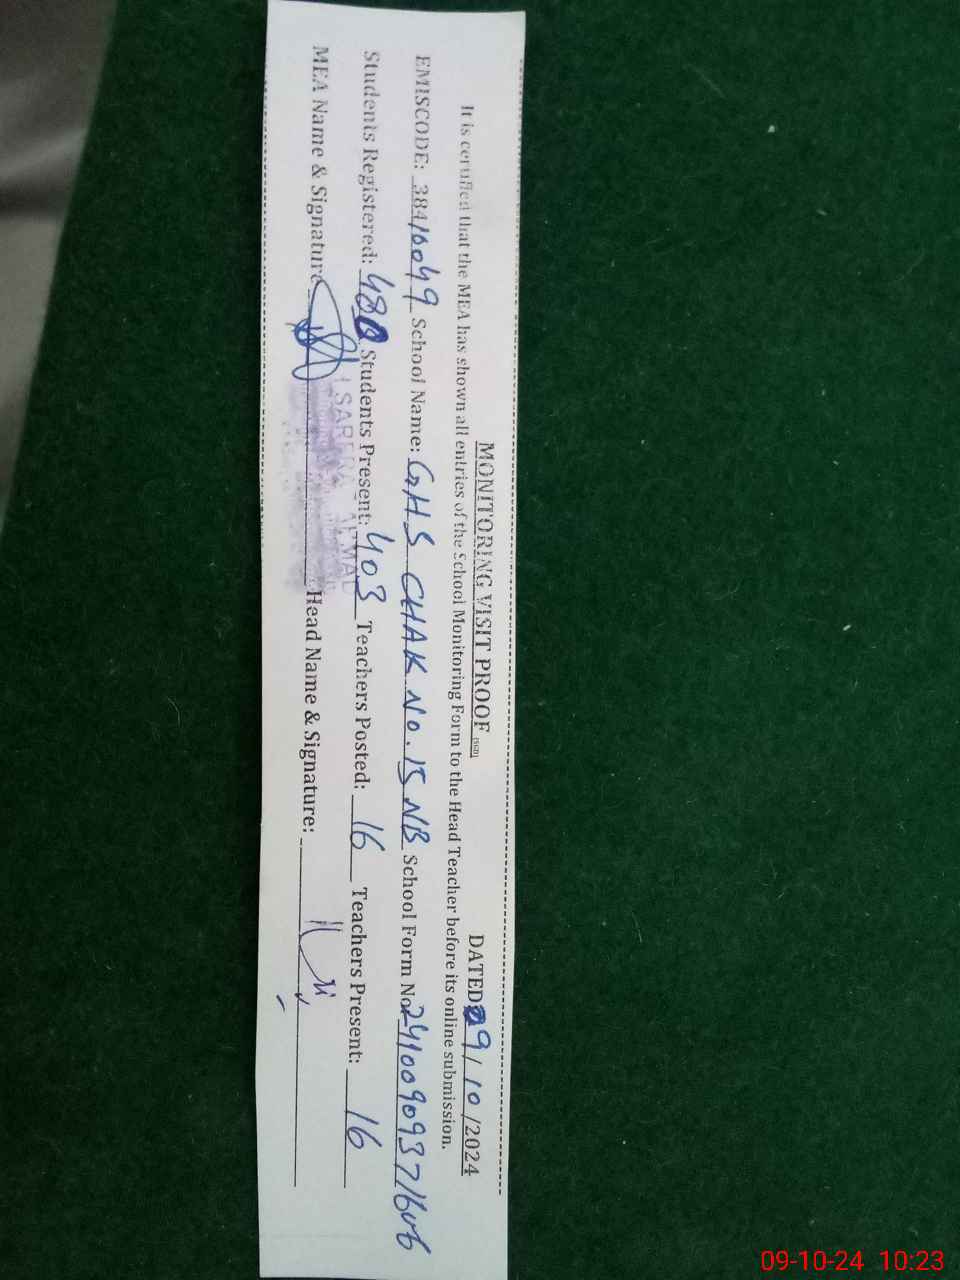 MONITORING VISIT PROOF (SED) DATED 09/10/2024
It is certified that the MEA has shown all entries of the School Monitoring Form to the Head Teacher before its online submission.
EMISCODE: 38416049 School Name: GHS CHAK NO.15 NB School Form No: 24100909371606
Students Registered: 480 Students Present: 403 Teachers Posted: 16 Teachers Present: 16
MEA Name & Signature Head Name & Signature:
09-10-24 10:23